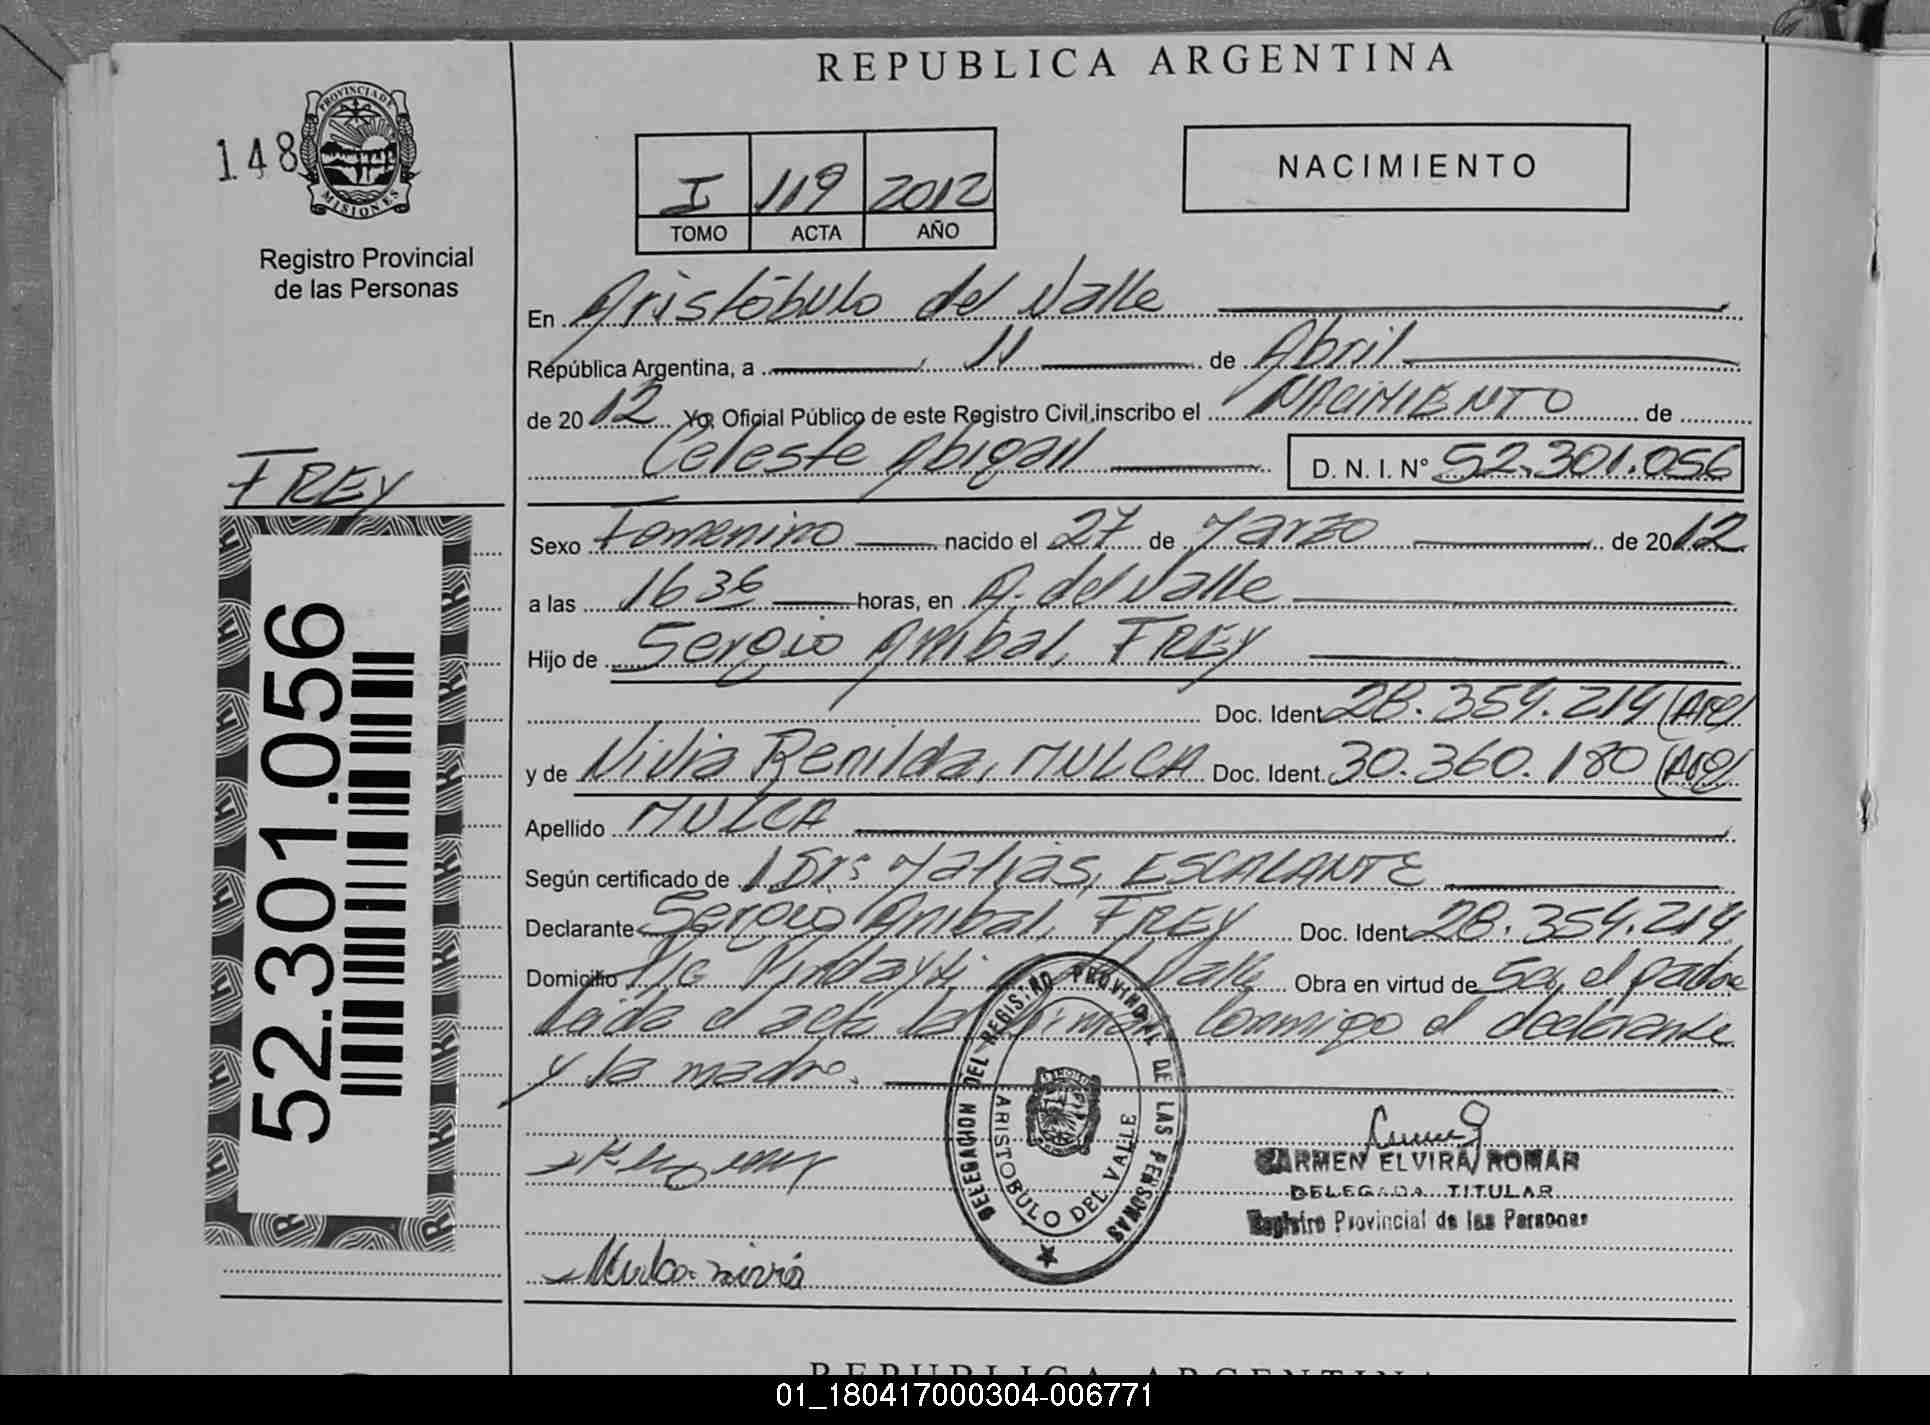 REPUBLICA ARGENTINA
148
PROVINCIA DE MISIONES
Registro Provincial
de las Personas
I 119 2012
TOMO ACTA AÑO
NACIMIENTO
En Aristóbulo del Valle
República Argentina, a 11 de Abril
de 2012 Yo, Oficial Público de este Registro Civil, inscribo el NACIMIENTO de
Celeste Abigail D. N. I. N° 52.301.056
FREY
Sexo Femenino nacido el 27 de Marzo de 2012
a las 16 36 horas, en A. del Valle
Hijo de Sergio Anibal, FREY
Doc. Ident. 28.354.214 (Arg)
y de Nivia Renilda, MULCA Doc. Ident. 30.360.180 (Arg)
Apellido MULCA
Según certificado de Dr: Matias, ESCALANTE
Declarante Sergio Anibal, FREY Doc. Ident. 28.354.214
Domicilio Valle Obra en virtud de Ser el padre
Leida el acta la firman conmigo el declarante
y la madre.
52.301.056
DELEGACION DEL REGISTRO PROVINCIAL DE LAS PERSONAS
ARISTOBULO DEL VALLE
CARMEN ELVIRA ROMAN
DELEGADA TITULAR
Registro Provincial de las Personas
Mulca nivia
REPUBLICA ARGENTINA
01_180417000304-006771